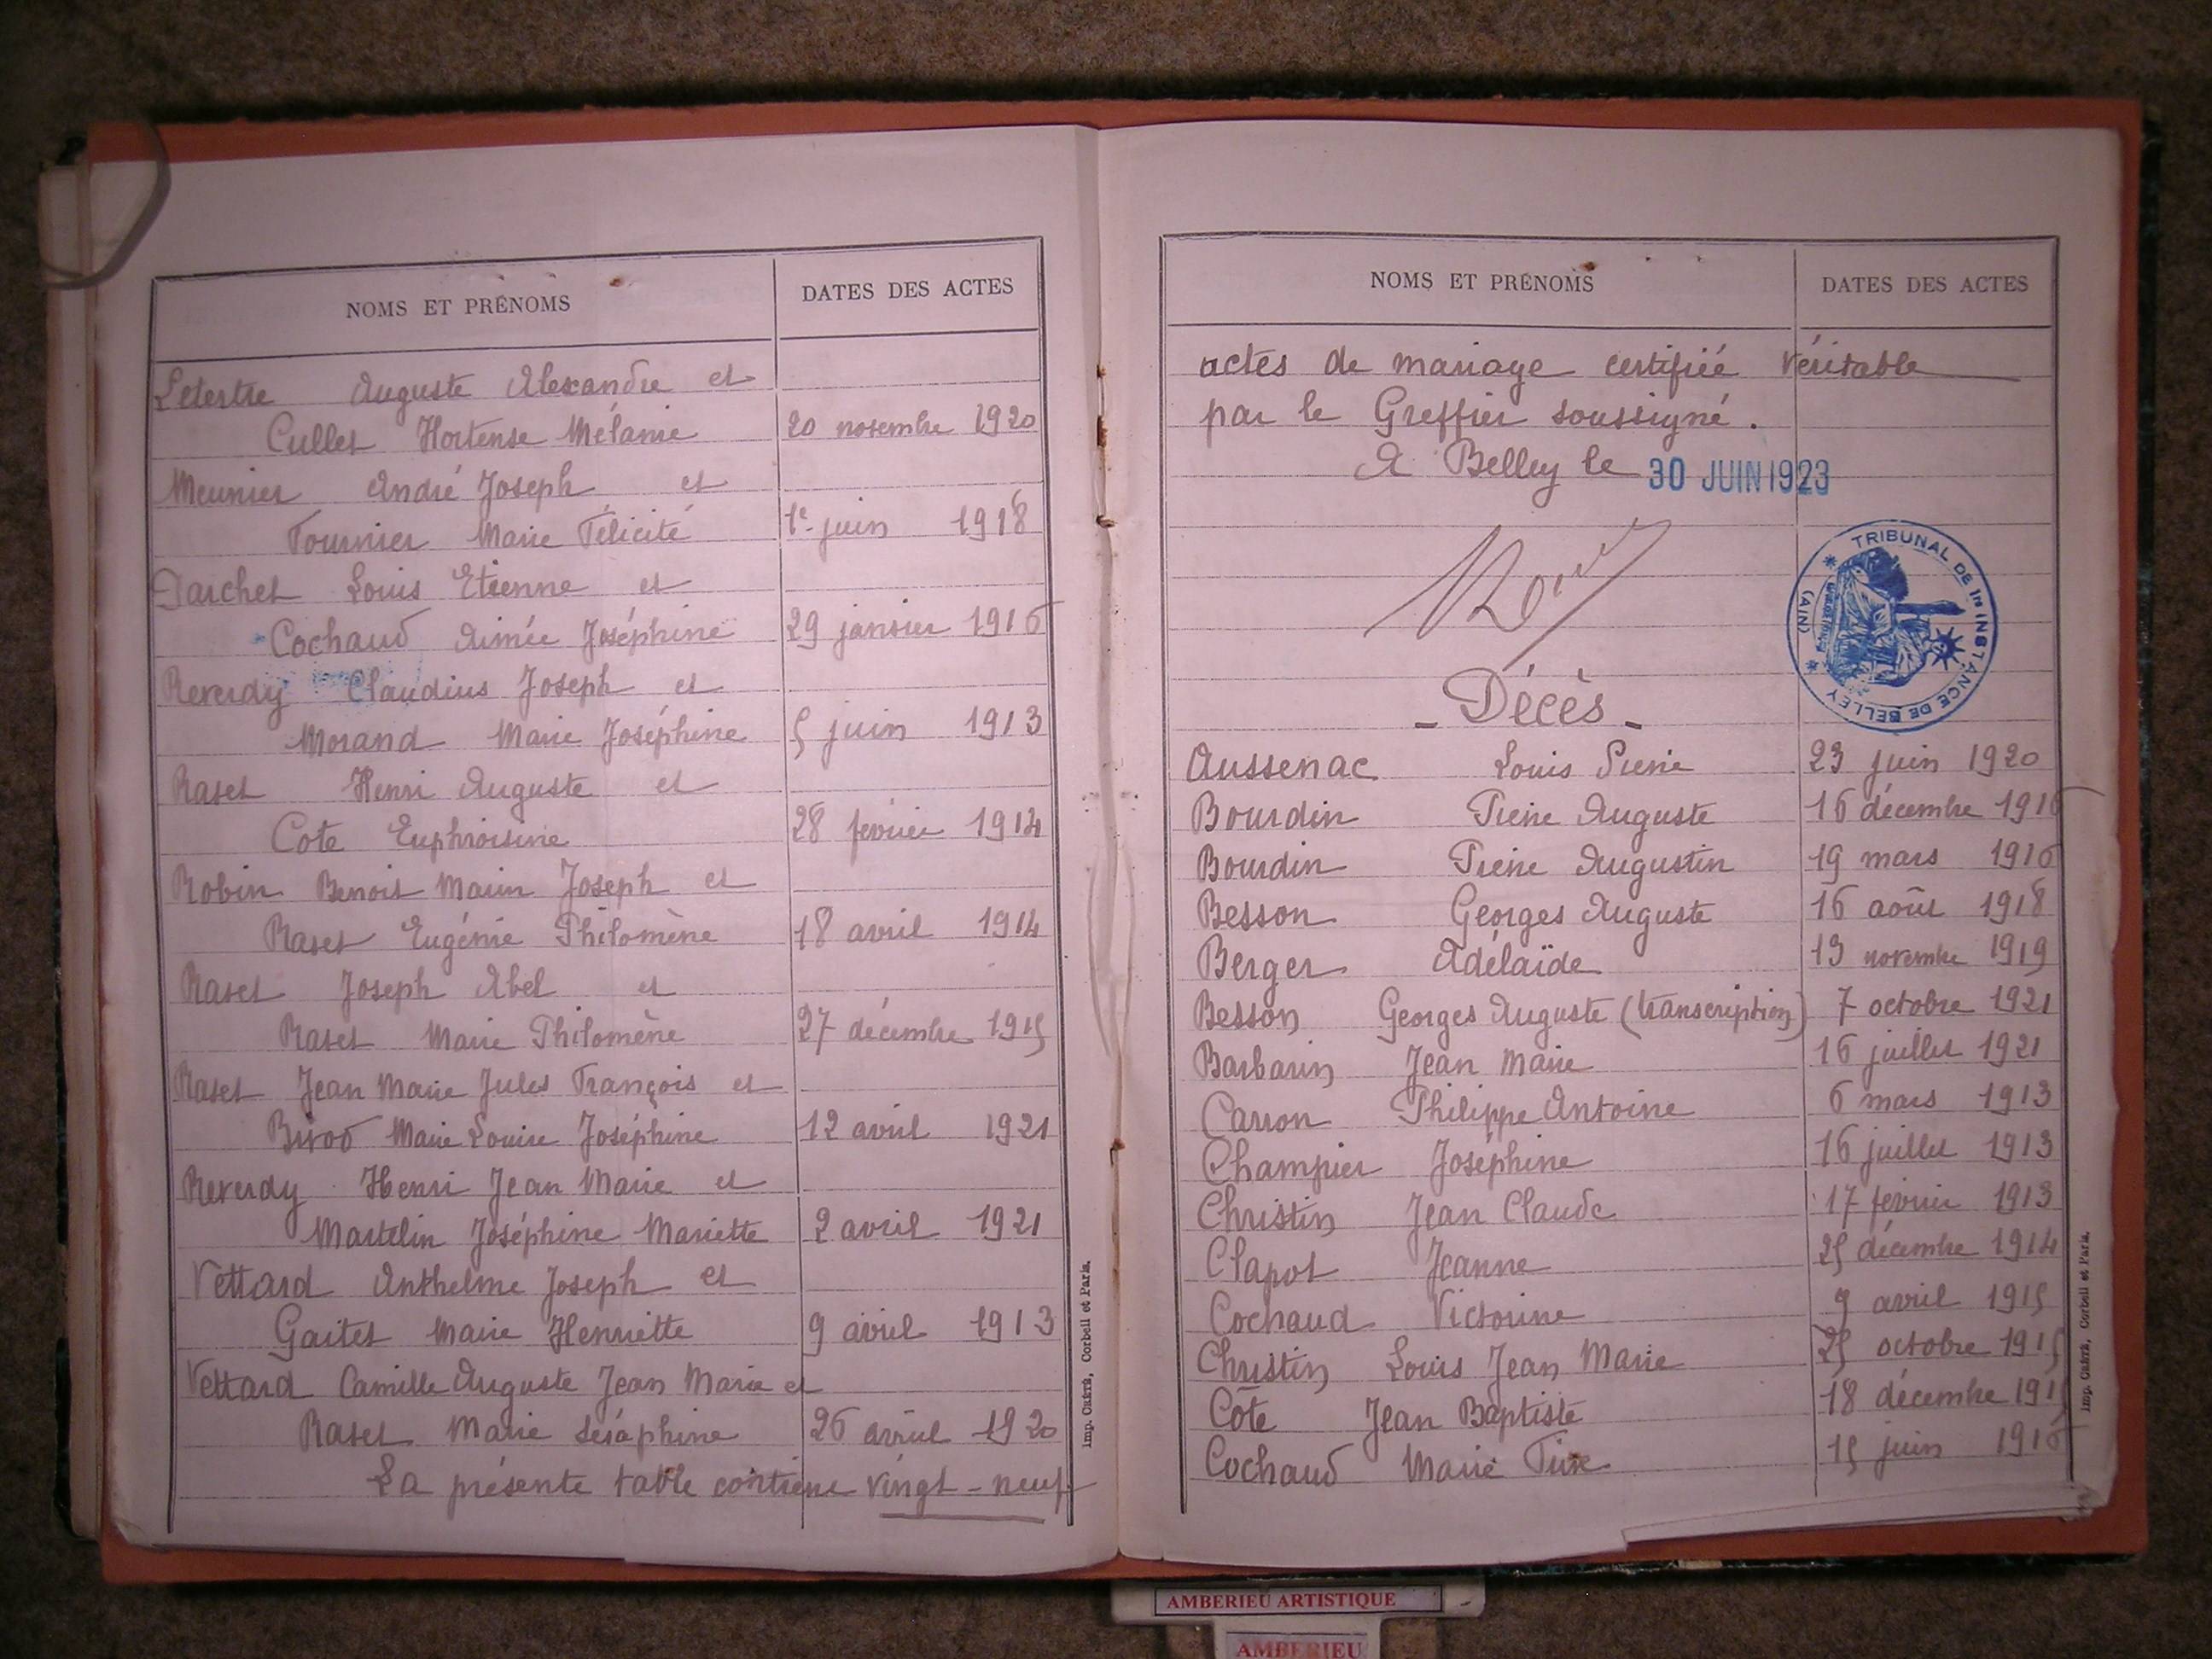 NOMS ET PRÉNOMS
DATES DES ACTES
Letertre Auguste Alexandre et
Cullet Hortense Mélanie 20 novembre 1920
Meunier André Joseph et
Tournier Marie Félicité 1e juin 1918
Parchet Louis Etienne et
Cochaud Aimée Joséphine 29 janvier 1916
Reverdy Claudius Joseph et
Morand Marie Joséphine 5 juin 1913
Ravet Henri Auguste et
Cote Euphroisine 28 février 1914
Robin Benoit Marin Joseph et
Ravet Eugénie Philomène 18 avril 1914
Ravet Joseph Abel et
Ravet Marie Philomène 27 décembre 1915
Ravet Jean Marie Jules François et
Marie Louise Joséphine 12 avril 1921
Reverdy Henri Jean Marie et
Martelin Joséphine Mariette 2 avril 1921
Vettard Anthelme Joseph et
Gaitet Marie Henriette 9 avril 1913
Vettard Camille Auguste Jean Marie et
Ravet Marie Séraphine 26 avril 1920
La présente table contient vingt-neuf
Imp. Crété, Corbeil et Paris.
NOMS ET PRÉNOMS
DATES DES ACTES
actes de mariage certifiée véritable
par le Greffier soussigné.
A Belley le 30 JUIN 1923
TRIBUNAL DE 1re INSTANCE DE BELLEY
(AIN)
- Décès -
Aussenac Louis Pierre 23 juin 1920
Bourdin Pierre Auguste 16 décembre 1916
Bourdin Pierre Augustin 19 mars 1916
Besson Georges Auguste 16 août 1918
Berger Adélaïde 13 novembre 1919
Besson Georges Auguste (transcription) 7 octobre 1921
Barbarin Jean Marie 16 juillet 1921
Carron Philippe Antoine 6 mars 1913
Champier Joséphine 16 juillet 1913
Christin Jean Claude 17 février 1913
Clapot Jeanne 25 décembre 1914
Cochaud Victorine 9 avril 1915
Christin Louis Jean Marie 25 octobre 1915
Côte Jean Baptiste 18 décembre 1915
Cochaud Marie 15 juin 1916
Imp. Crété, Corbeil et Paris.
AMBERIEU ARTISTIQUE
AMBERIEU